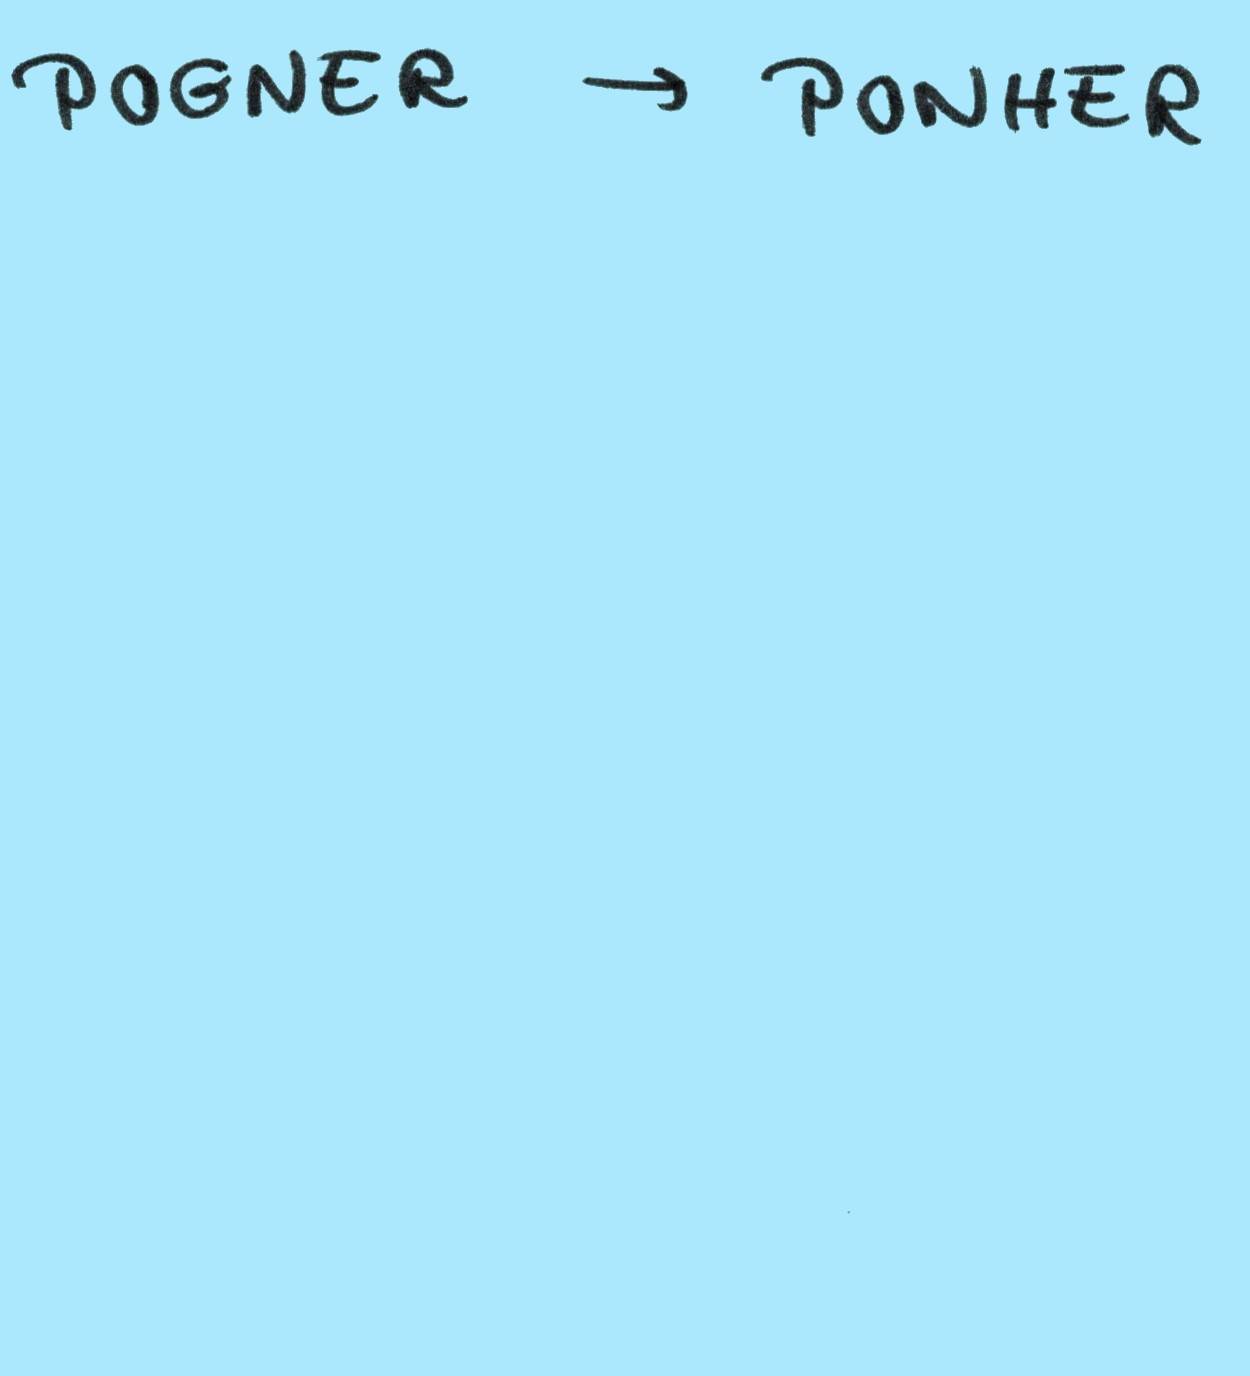 POGNER → PONHER